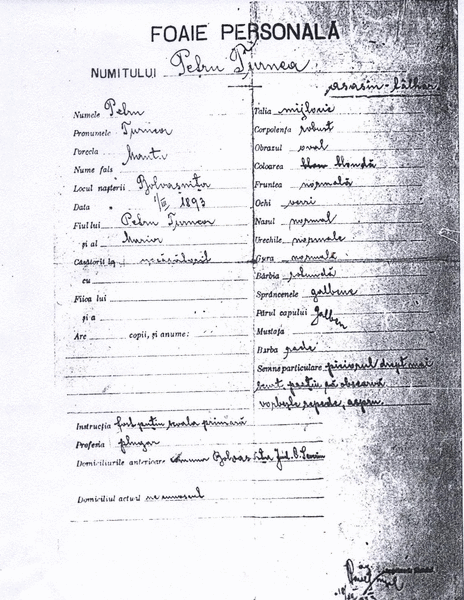 FOAIE PERSONALĂ
NUMITULUI Petru Turnea
asasin-tâlhar
Numele Petru
Pronumele Turnea
Porecla Mantu
Nume fals
Locul nașterii Bolvasnița
Data 1893
Fiul lui Petru Turnea
și al Maria
Căsătorit la necăsătorit
cu
Fiica lui
și a
Are copii, și anume:
Talia mijlocie
Corpolența robust
Obrazul oval
Coloarea blondă
Fruntea normală
Ochi verzi
Nasul normal
Urechile normale
Gura normală
Bărbia rotundă
Sprâncenele galbene
Părul capului galben
Mustața
Barba rade
Semne particulare piciorul drept mai
scurt, puțin să observă
vorbește repede, aspru
Instrucția fost puțin școala primară
Profesia plugar
Domiciliurile anterioare comuna Bolvasnița Jud. C. Severin
Domiciliul actual necunoscut